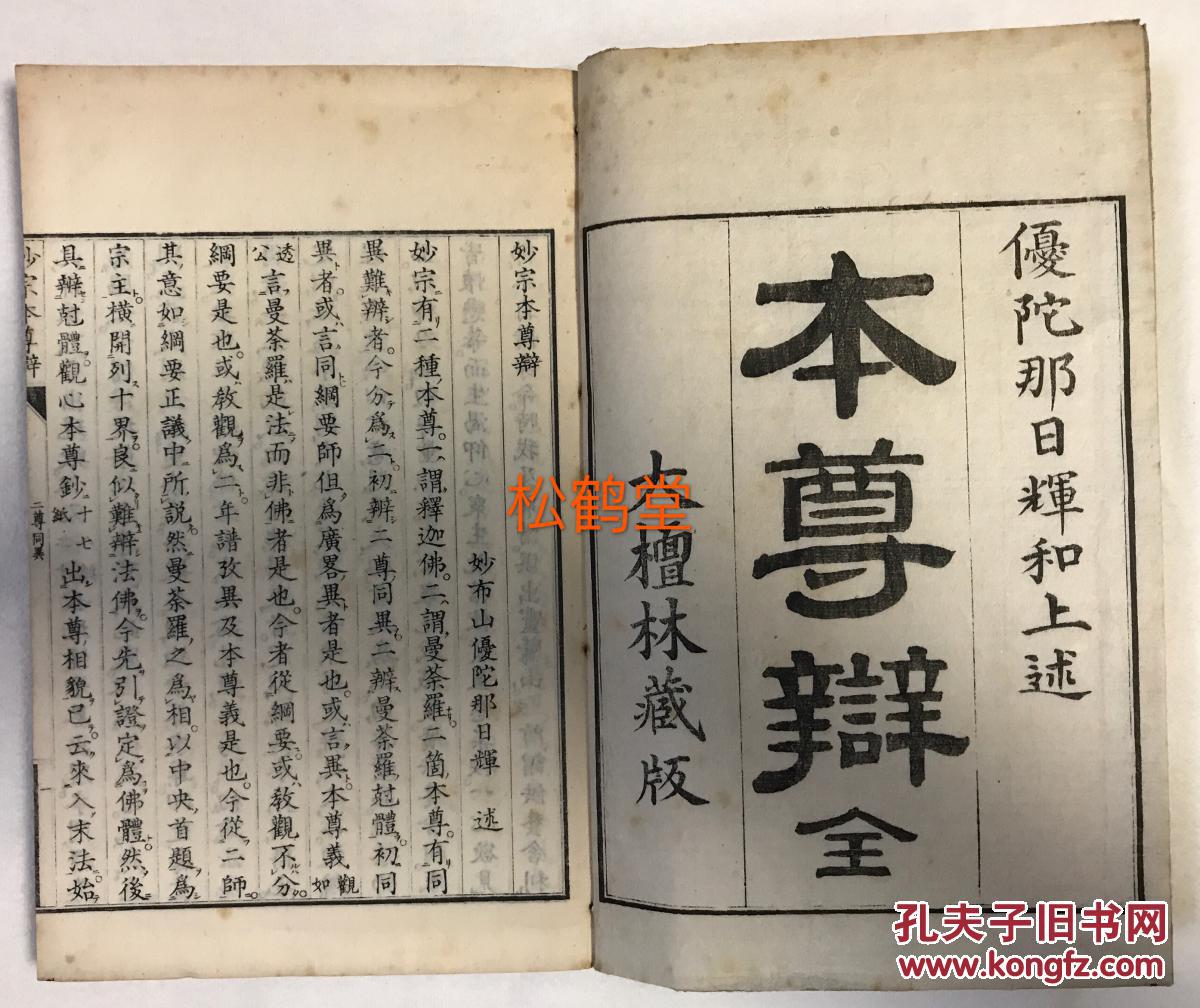 優陀那日輝和上述
本尊辯全
大檀林藏版
松鹤堂
妙宗本尊辯
妙布山優陀那日輝 述
妙宗有二種本尊。一謂釋迦佛。二謂曼荼羅。二箇本尊。有同
異難辨者。今分爲二。初辨二尊同異二辨曼荼羅尅體。初同
異者。或言同綱要師但爲廣畧異者是也。或言異。本尊義觀如
透公言曼荼羅是法而非佛者是也。今者從綱要。或教觀不分。
綱要是也。或教觀爲二。年譜攷異及本尊義是也。今從二師。
其意如綱要正議中所説。然曼荼羅之爲相。以中央首題爲
宗主。横開列十界。良似難辯法佛。今先引證定爲佛體。然後
具辨尅體。觀心本尊鈔十七紙出本尊相貌已云。來入末法始
妙宗本尊辯
二尊同異
一
孔夫子旧书网
www.kongfz.com